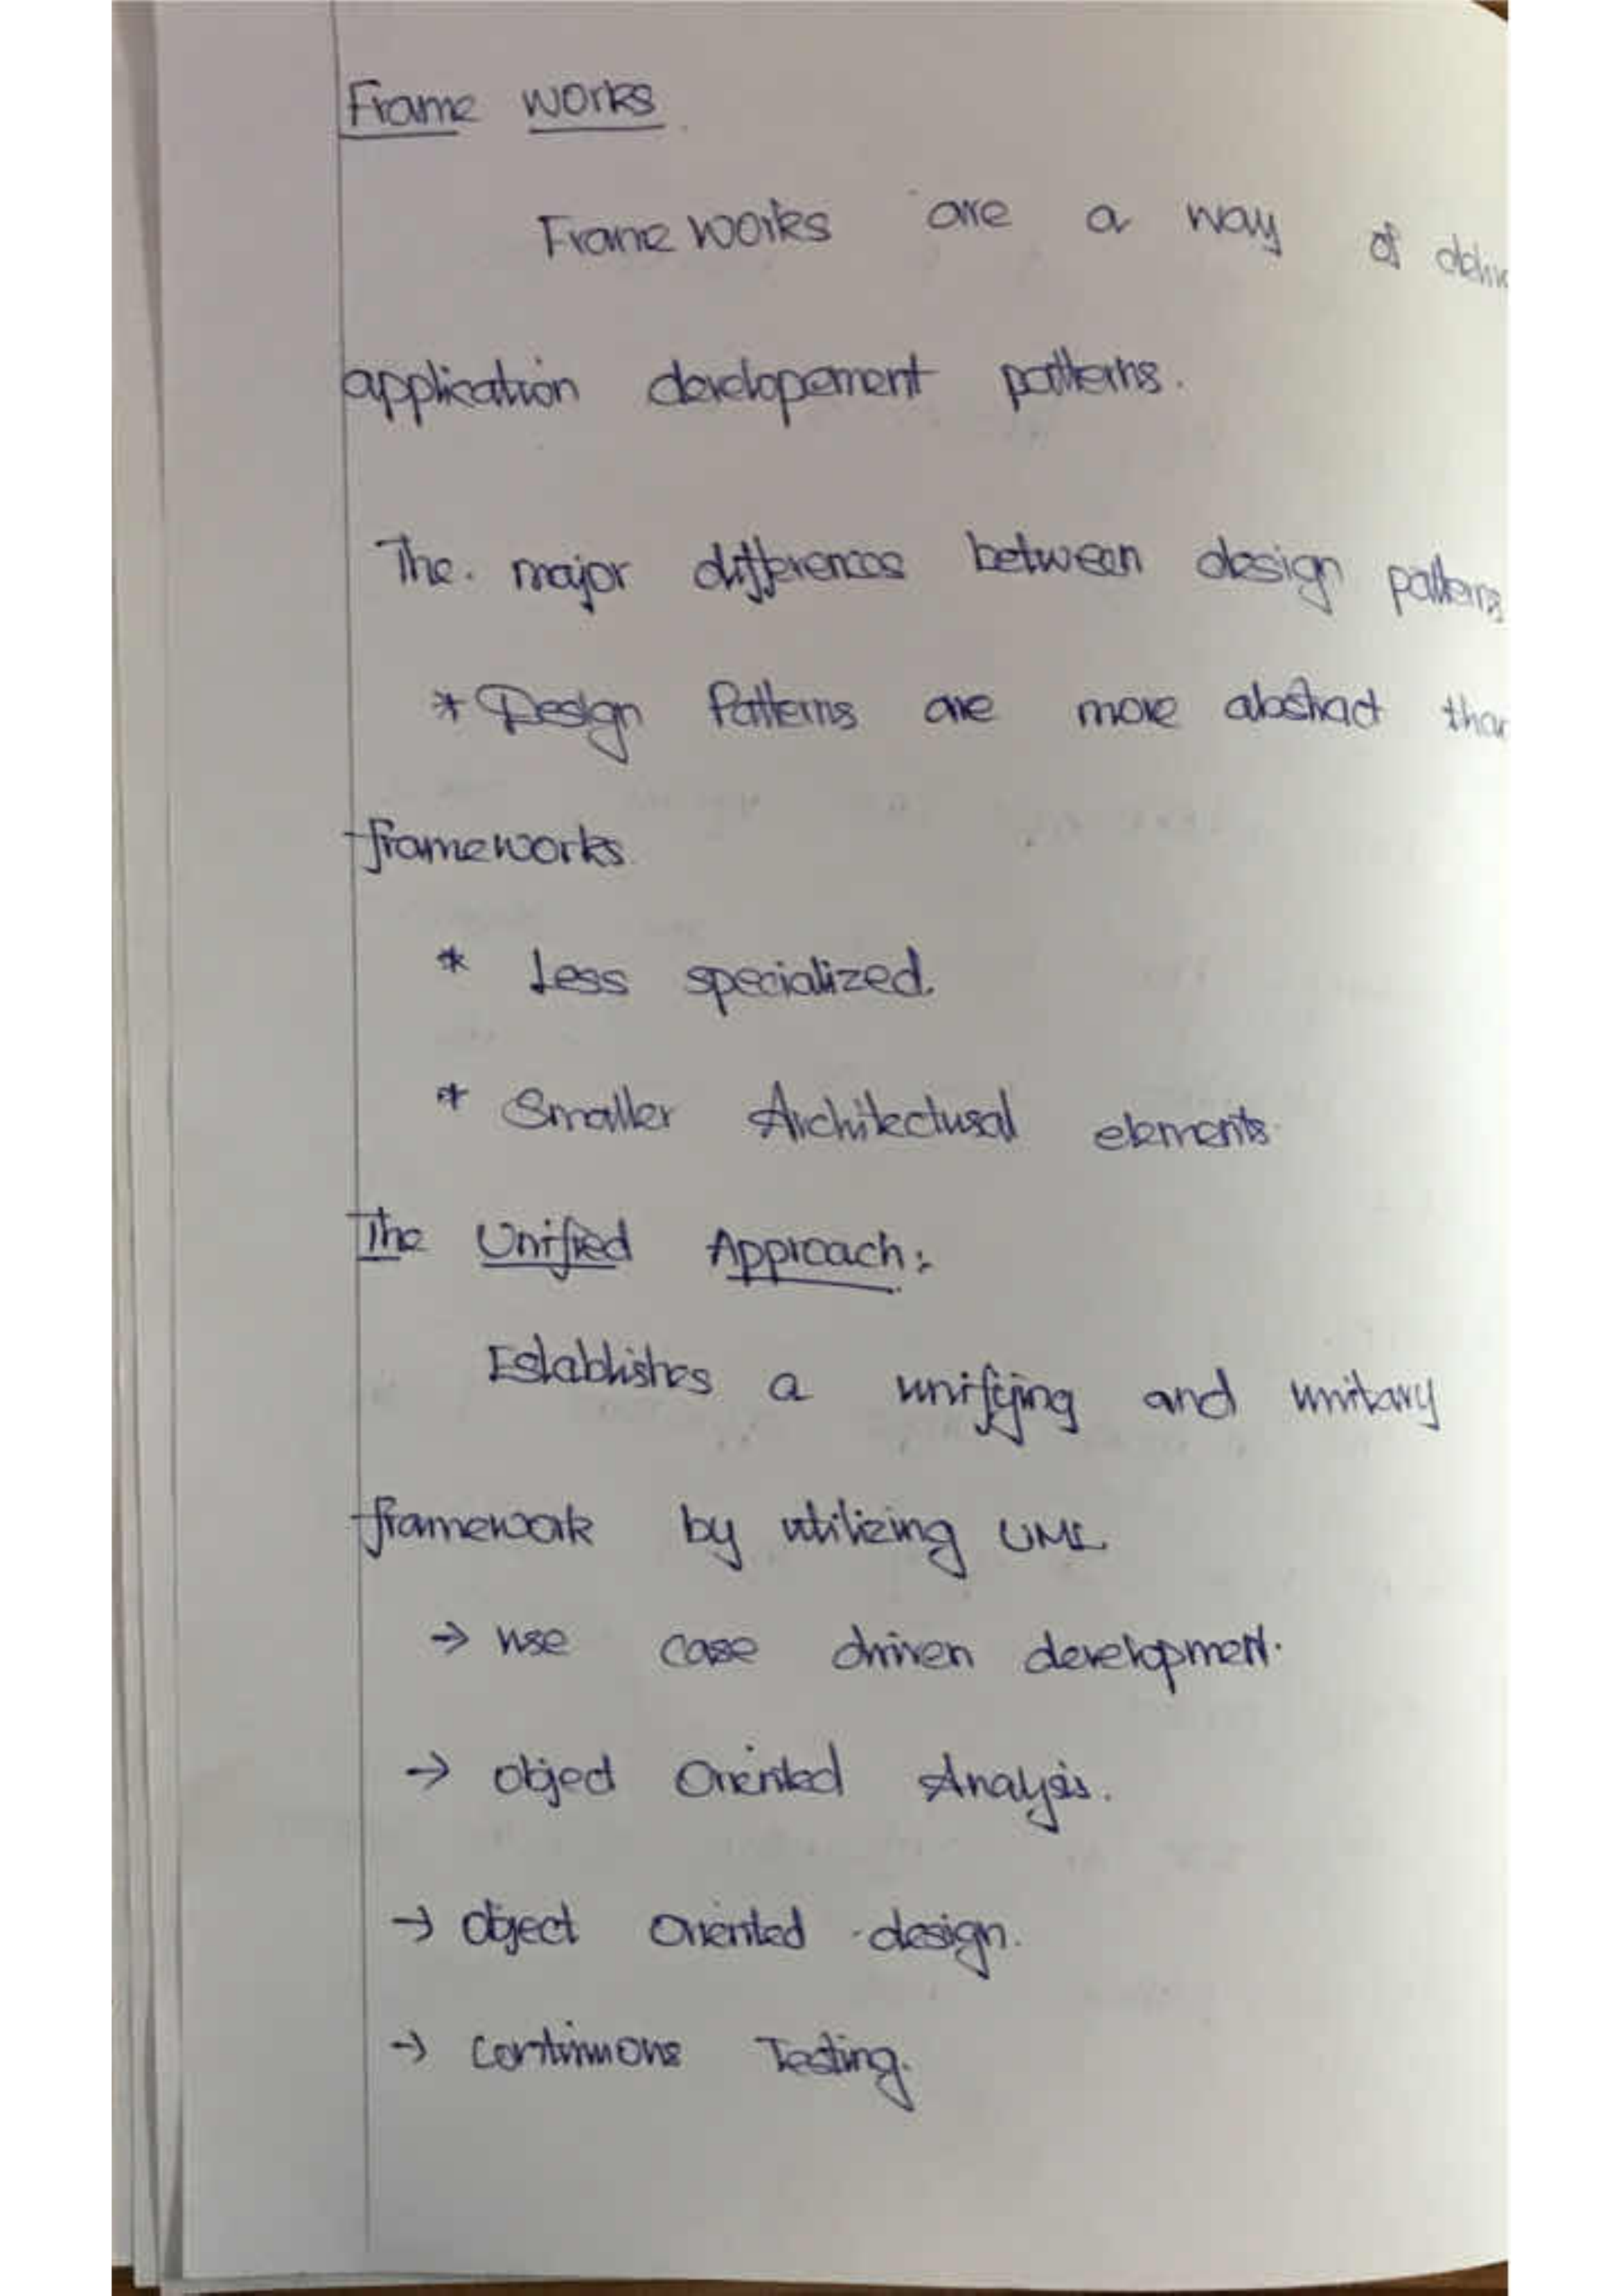 Frame works
Frame works are a way of
application developement patterns.
The major differences between design patterns
* Design Patterns are more abstract than
frameworks.
* Less specialized.
* Smaller Architectusal elements.
The Unified Approach:
Establishes a unifying and unitary
framework by utilizing UML
→ use case driven development.
→ object Oriented Analysis.
→ object oriented design.
→ continuous Testing.